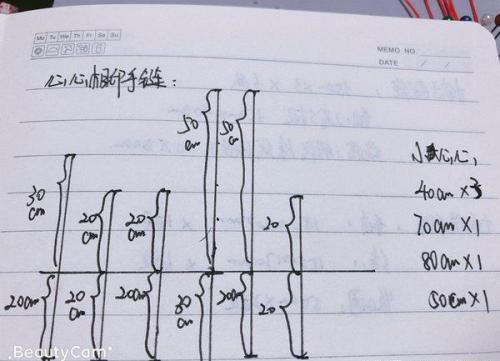 Mo Tu We Th Fr Sa Su
MEMO NO.
DATE / /
心心相印手链:
50cm 50cm
30cm 20cm 20cm 20
20cm 20cm 20cm 30cm 20cm 20
小心心
40cm×3
70cm×1
80cm×1
50cm×1
BeautyCam